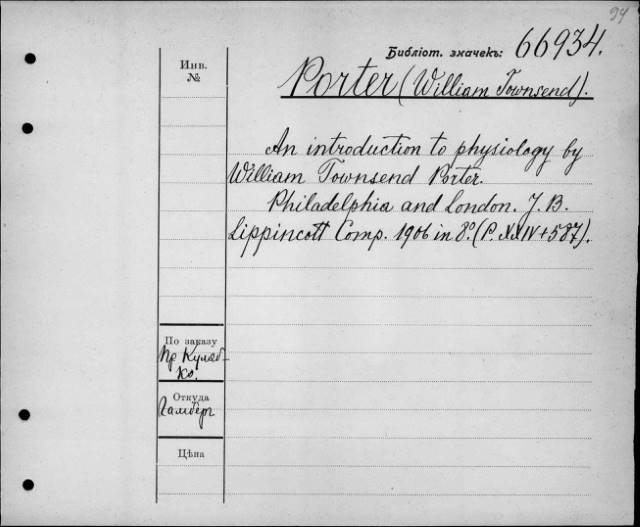 94
Библіот. значекъ: 66934.
Инв.
№
Porter (William Townsend).
An introduction to physiology by
William Townsend Porter.
Philadelphia and London. J. B.
Lippincott Comp. 1906 in 8º. (P. XXIV+587).
По заказу
Пр Куляб-
ко.
Откуда
Гамберг
Цѣна